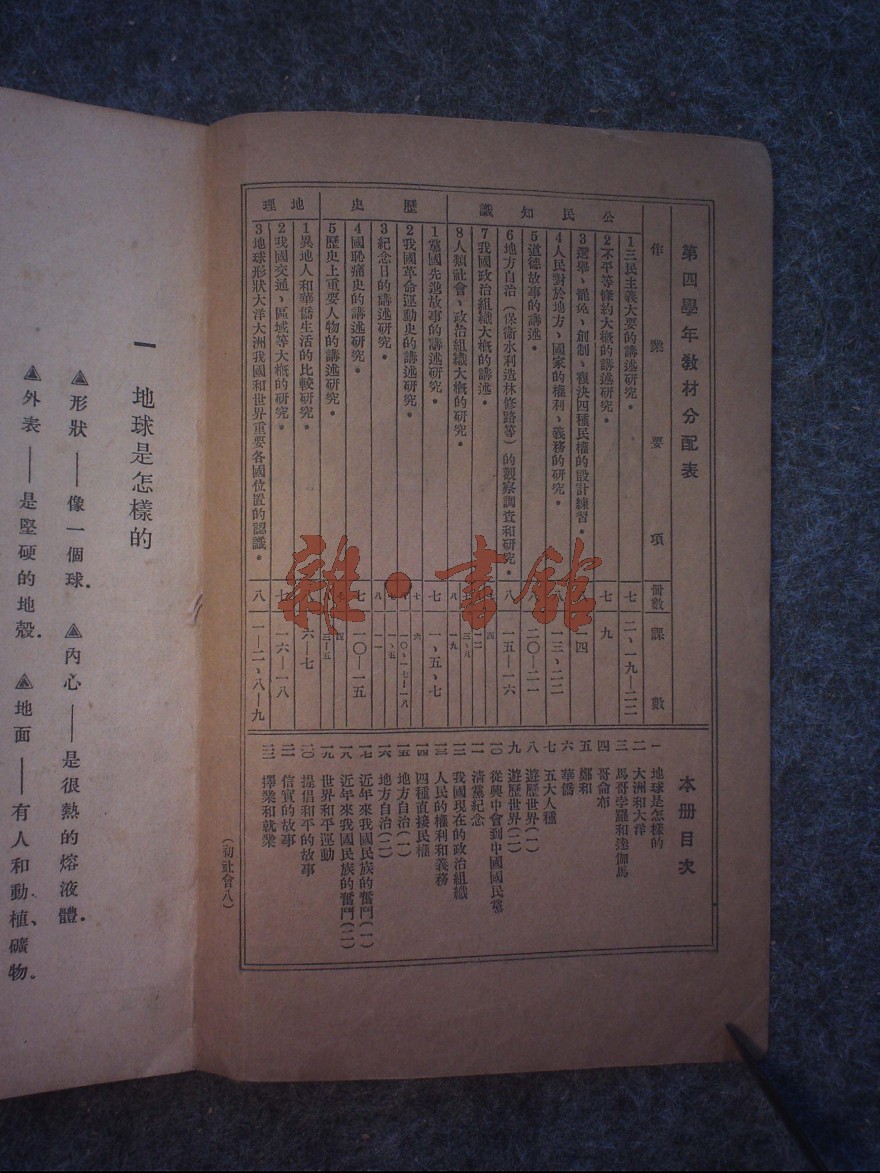 第四學年教材分配表
作業要項 冊數 課數
公民知識
1三民主義大要的講述研究。 七 二、一九—二二
2不平等條約大概的講述研究。 七 九
3選舉、罷免、創制、複決四種民權的設計練習。 一四
4人民對於地方、國家的權利、義務的研究。 八 一三、二二
5道德故事的講述。 八 二〇—二一
6地方自治(保衛水利造林修路等)的觀察調查和研究。 八 一五—一六
7我國政治組織大概的講述。
8人類社會、政治組織大概的研究。
歷史
1黨國先進故事的講述研究。 七 一、五、七
2我國革命運動史的講述研究。
3紀念日的講述研究。
4國恥痛史的講述研究。 七 一〇—一五
5歷史上重要人物的講述研究。
地理
1異地人和華僑生活的比較研究。 六—七
2我國交通、區域等大概的研究。 七 一六—一八
3地球形狀大洋大洲我國和世界重要各國位置的認識。 八 一—二、八—九
本冊目次
一 地球是怎樣的
二 大洲和大洋
三 馬哥孛羅和達伽馬
四 哥侖布
五 鄭和
六 華僑
七 五大人種
八 遊歷世界(一)
九 遊歷世界(二)
一〇 從興中會到中國國民黨
一一 清黨紀念
一二 我國現在的政治組織
一三 人民的權利和義務
一四 四種直接民權
一五 地方自治(一)
一六 地方自治(二)
一七 近年來我國民族的奮鬥(一)
一八 近年來我國民族的奮鬥(二)
一九 世界和平運動
二〇 提倡和平的故事
二一 信實的故事
二二 擇業和就業
(初社會八)
一 地球是怎樣的
形狀——像一個球. 內心——是很熱的熔液體.
外表——是堅硬的地殼. 地面——有人和動植、礦物。
雜·書館